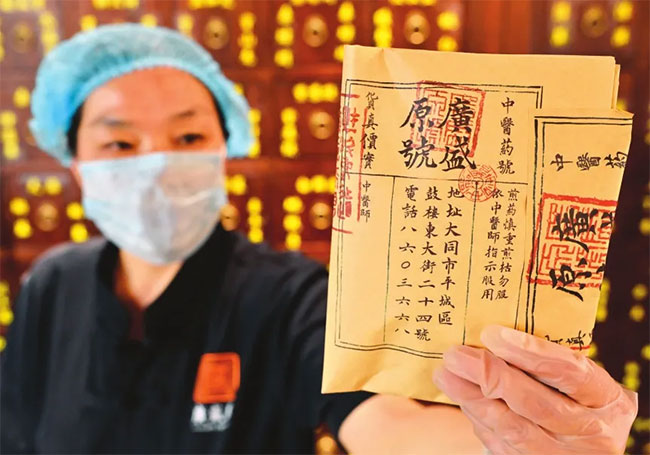 中醫药號
煎药慎重煎枯勿服
依中醫師指示服用
廣盛
原號
地址大同市平城區
鼓樓東大街二十四號
電話八六〇三六六八
中醫師
貨真價實
中醫药
廣
原